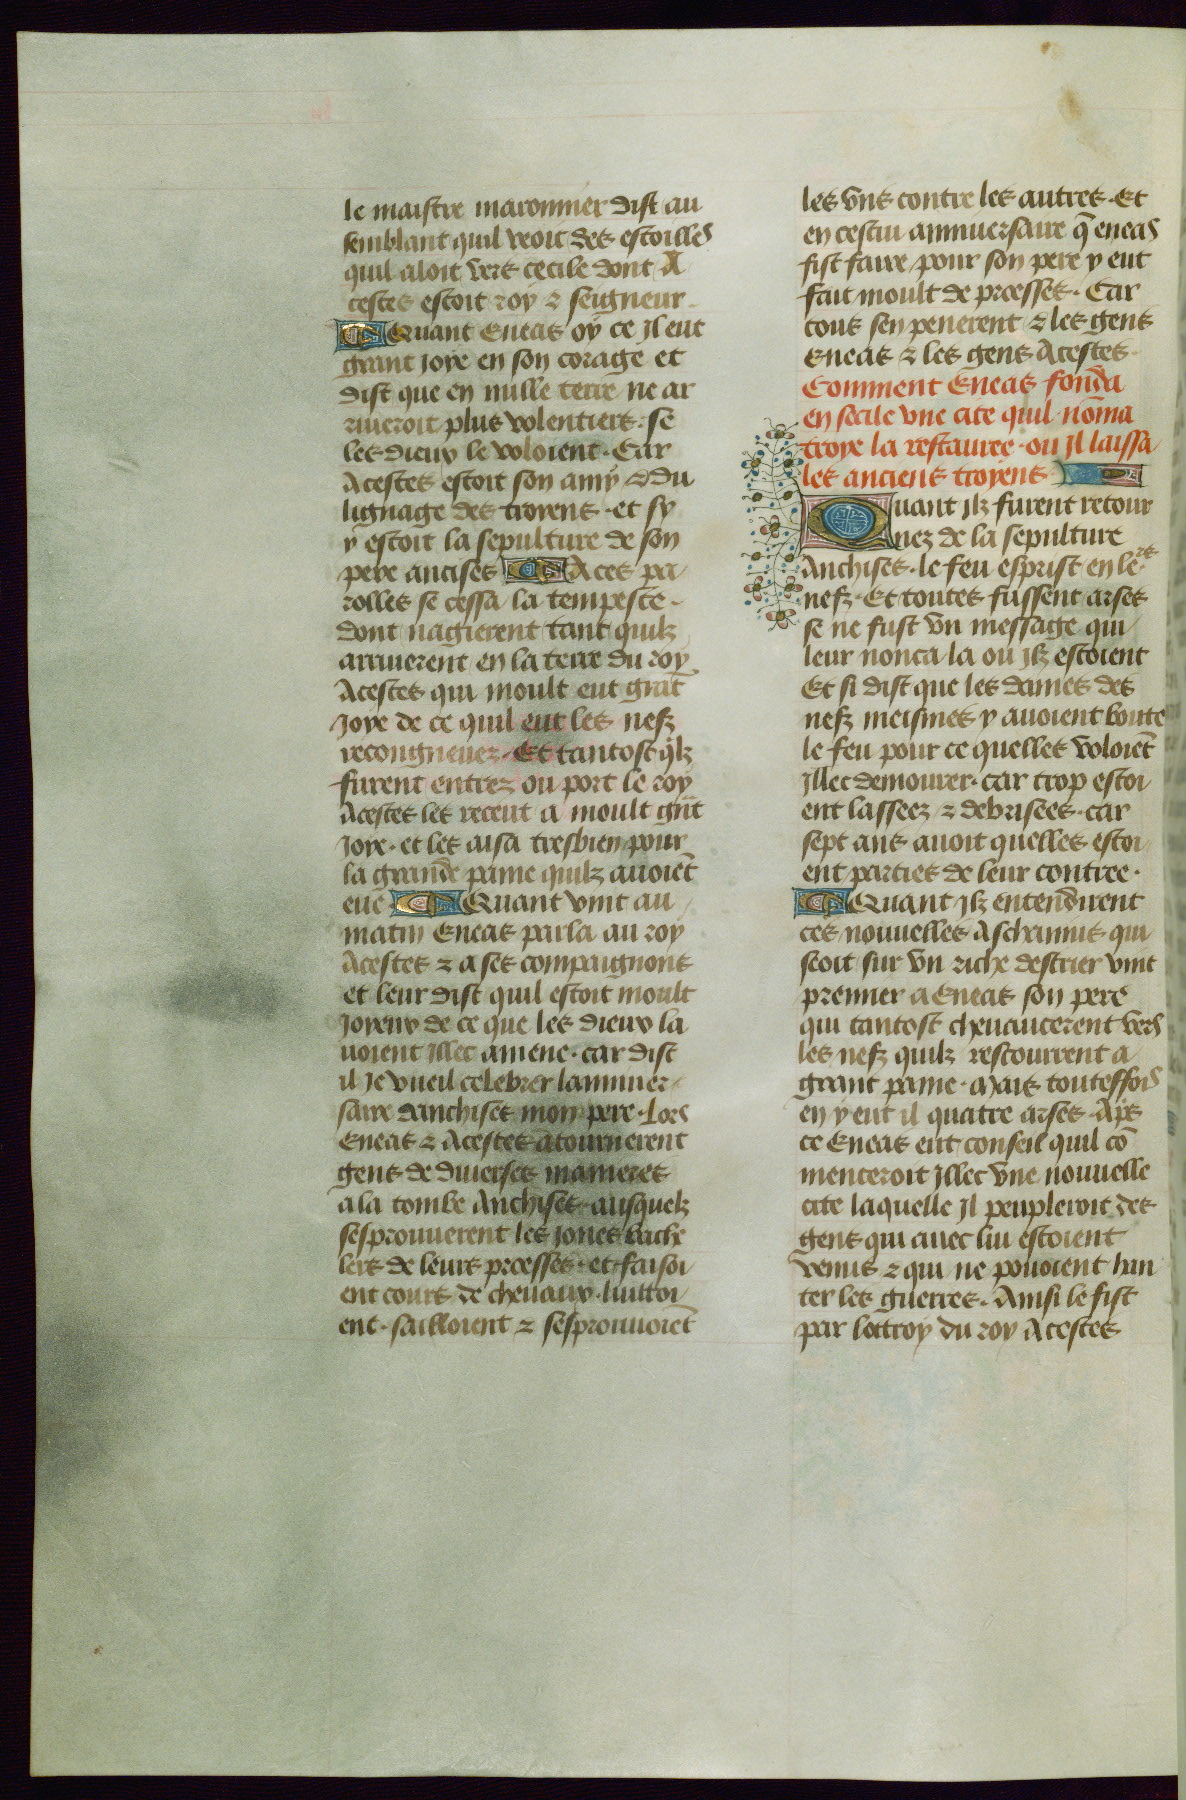 le maistre maronnier dist au
semblant quil veoit des estoilles
quil aloit vers cecile dont A
cestes estoit roy ⁊ seigneur.
Quant Eneas oy ce Jl eut
grant joye en son corage et
dist que en nulle terre ne ar
riueroit plus volentiers. se
les dieux le voloient. Car
Acestes estoit son amy ⁊ du
lignage des troyens. et sy
y estoit la sepulture de son
pere ancises A ces pa/
rolles se cessa la tempeste.
dont nagierent tant quilz
arriuerent en la terre du roy
Acestes qui moult eut grāt
Joye de ce quil eut les nefz
recongneuez. Et tantost qͥlz
furent entrez ou port le roy
Acestes les receut a moult gr̄t
Joye. et les aisa tresbien pour
la grande paine quilz auoiēt
eue. Quant vint au
matin Eneas parla au roy
Acestes ⁊ a ses compaignons
et leur dist quil estoit moult
Joyeux de ce que les dieux la
uoient Jllec amene. car dist
il Je vueil celebrer lanniuer/
saire danchises mon pere. Lors
Eneas ⁊ Acestes atournerent
gens de diuerses manieres
a la tombe Anchises. ausquelz
sesprouuerent les jones bache
lers de leurs proesses. et faisoi
ent cours de cheuaux. luittoi
ent. sailloient ⁊ sesprouuoiēt
les vns contre les autres. Et
en cestui anniuersaire q̄ eneas
fist faire pour son pere y eut
fait moult de proesses. Car
tous sen penerent ⁊ les gens
Eneas ⁊ les gens Acestes.
Comment Eneas fonda
en secile vne cite quil nōma
troye la restauree. ou Jl laissa
les anciens troyens.
Quant Jlz furent retour
nez de la sepulture
Anchises. le feu esprist en leͬˢ
nefz. Et toutes fussent arses
se ne fust vn message qui
leur nonca la ou Jlz estoient
Et si dist que les dames des
nefz meismes y auoient boute
le feu pour ce quelles voloiēt
Jllec demourer. car trop estoi
ent lasseez ⁊ debrisees. car
sept ans auoit quelles estoi
ent parties de leur contree.
Quant Jlz entendirent
ces nouuelles Aschanius qui
seoit sur vn riche destrier vint
premier a Eneas son pere
qui tantost cheuaucerent vers
les nefz quilz rescourrent a
grant paine. Mais touteffois
en y eut il quatre arses. Apͤs
ce Eneas eut conseil quil cō
menceroit Jllec vne nouuelle
cite laquelle Jl peupleroit des
gens qui auec lui estoient
venus ⁊ qui ne pouoient han
ter les guerres. Ainsi le fist
par lottroy du roy Acestes